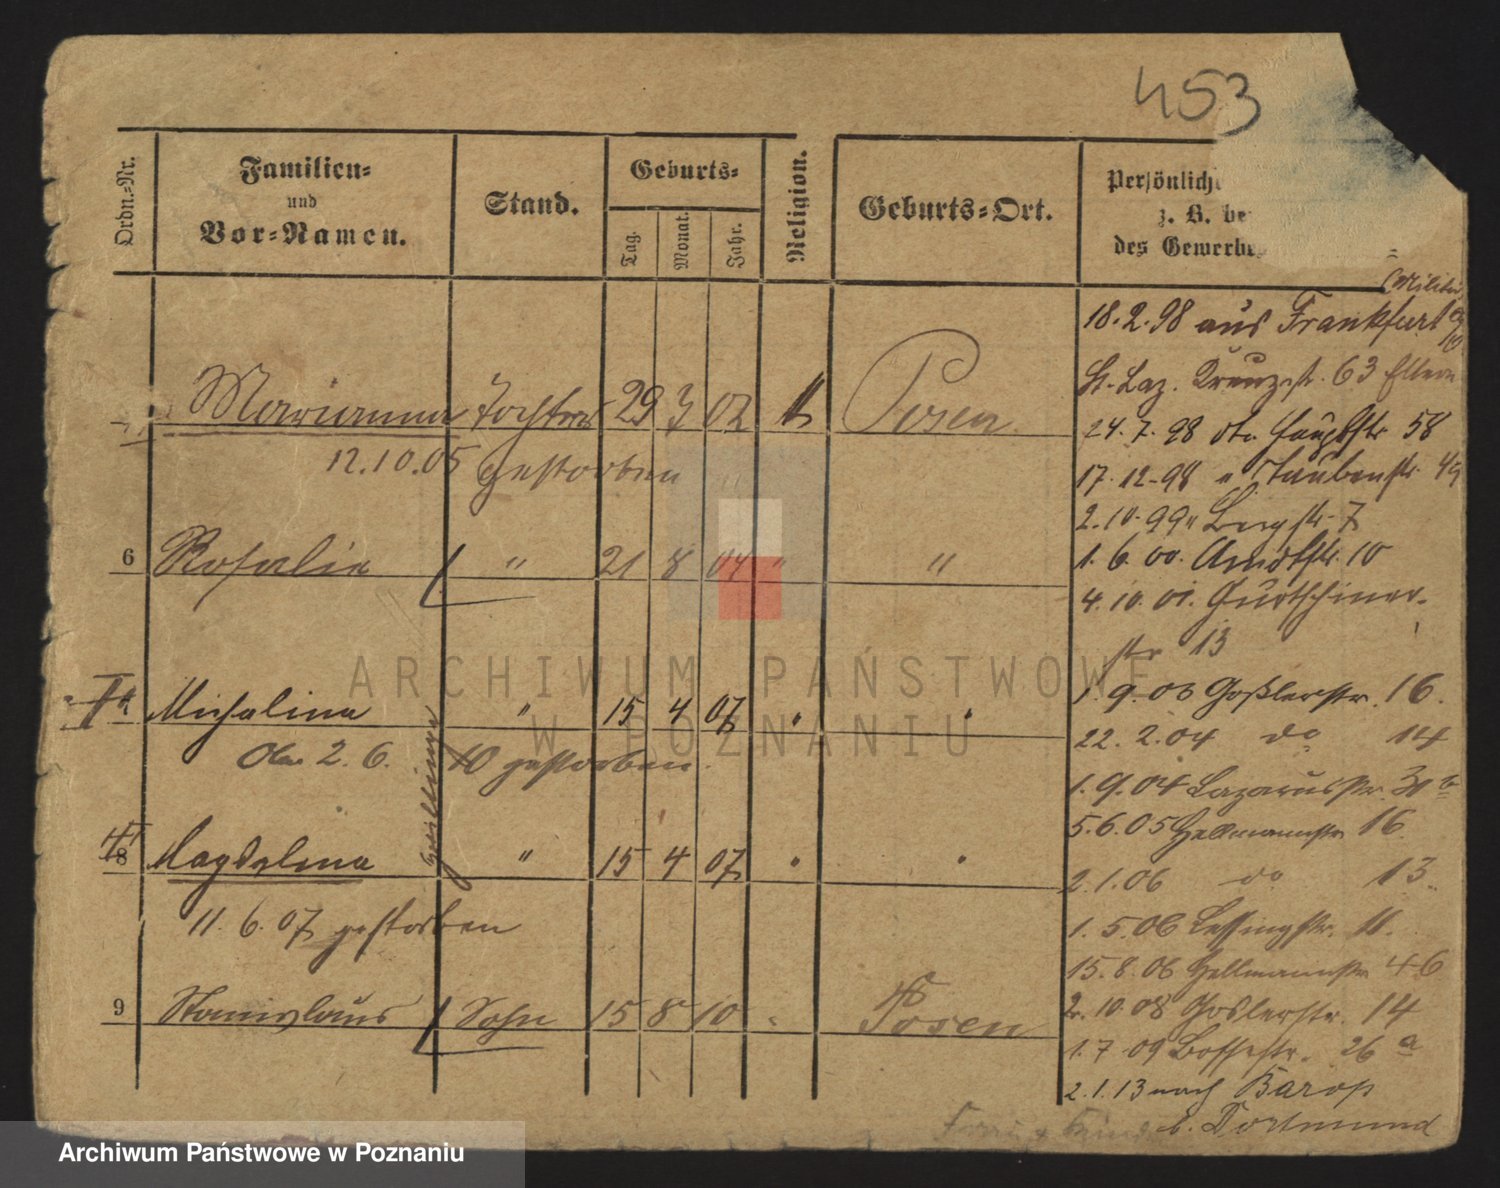 453
Ordn.-Nr.
Familien-
und
Vor-Namen.
Stand.
Geburts-
Tag.
Monat.
Jahr.
Religion.
Geburts-Ort.
Persönliche
z. B. be
des Gewerbes
Militär
18.2.98 aus Frankfurt
St. Laz. Kreuzstr. 63 Eltern
24.7.98 do. Hauptstr 58
17.12.98 " Staubenstr. 49
2.10.99 " Bergstr. 7
1.6.00. Arndtstr. 10
4.10.01. Gurtschiner-
str 13
1.9.03 Goßlerstr. 16.
22.2.04 do 14
1.9.04 Lazarusstr. 30 b
5.6.05 Hellmannstr 16.
2.1.06 do 13.
1.5.06 Lessingstr. 11.
15.8.06 Hellmannstr 46
2.10.08 Goslerstr. 14
1.7.09 Bothestr. 26 a
2.1.13 nach Barop
b. Dortmund
Marianna Tochter 29 3 02 Posen
12.10.05 gestorben
6 Rosalie " 21 8 04 " "
Michalina " 15 4 07 " "
2.6. 10 gestorben.
Zwillinge
8 Magdalena " 15 4 07 " "
11.6.07 gestorben
9 Stanislaus Sohn 15 8 10 " Posen
Frau + Kinder
ARCHIWUM PAŃSTWOWE
W POZNANIU
Archiwum Państwowe w Poznaniu